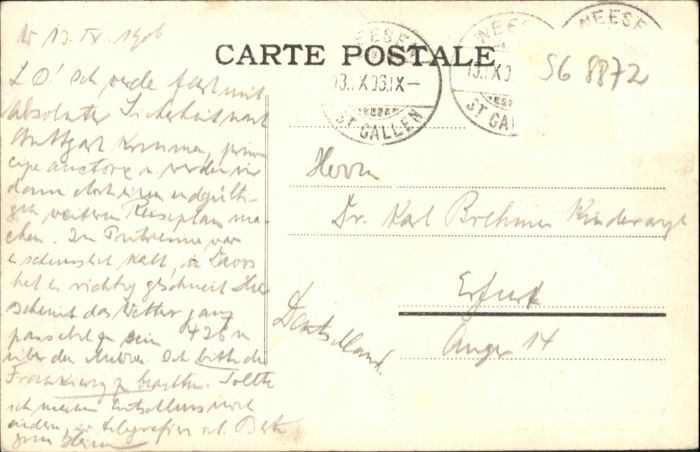 W 13. IX. 1906
L. O! Ich werde fast mit
absoluter Sicherheit nach
Stuttgart kommen,
u. werden wir
dann dort einen endgülti-
gen weiteren Reiseplan ma-
chen. In war
es kalt, in Davos
hat es richtig geschneit. Hier
scheint das Wetter ganz
passabel zu sein 426 m
über dem Meere. Ich bitte die
Frankierung zu beachten. Sollte
ich meinen Entschluss noch
ändern, so telegrafire ich. Besten
CARTE POSTALE
WEESEN
13.IX.06.IX-
ST. GALLEN
WEESEN
13.IX.0
ST. GA
WEESE
S6 8872
Herrn
Dr. Karl Brehmer Kinderarzt
Erfurt
Anger 14
Deutschland.